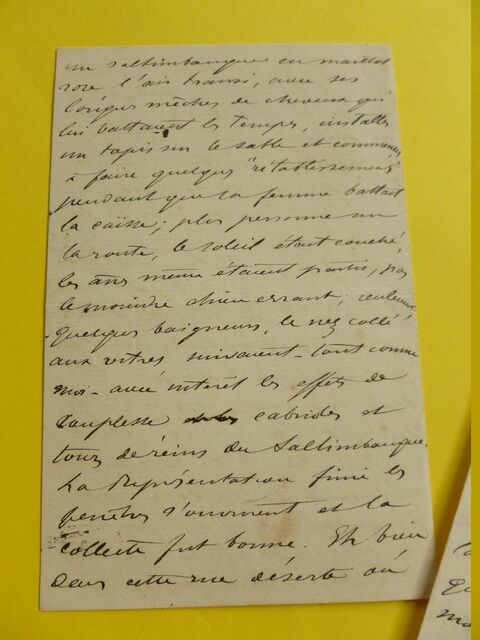 un saltimbanque en maillot
rose l'air transi, avec ses
longues mèches de cheveux qui
lui battaient les tempes, installer
un tapis sur le sable et commencer
à faire quelques "rétablissements"
pendant que sa femme battait
la caisse; plus personne sur
la route, le soleil était couché,
les ânes même étaient partis, pas
le moindre chien errant, seulement
quelques baigneurs, le nez collé
aux vitres suivaient - tout comme
moi - avec intérêt les effets de
souplesse cabrioles et
tours de reins du Saltimbanque.
La Représentation finie les
fenêtres s'ouvrirent et la
collecte fut bonne. Eh bien
dans cette rue déserte où